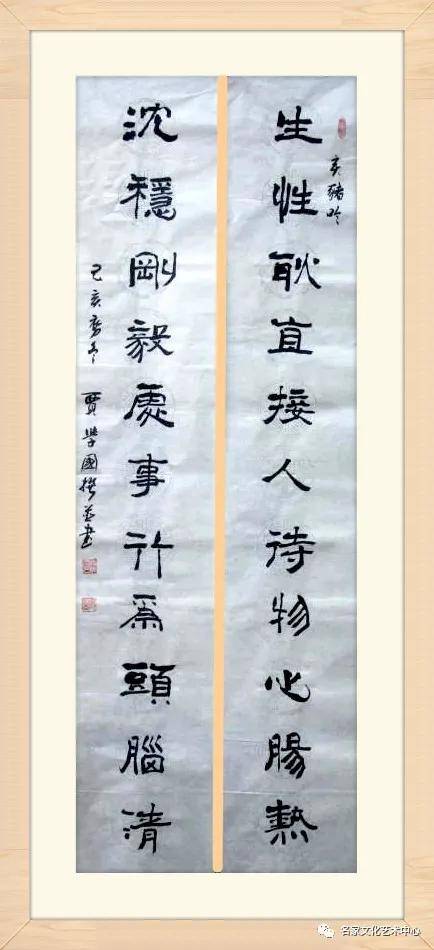 亥豬吟
生性耿直接人待物心腸熱
沈穩剛毅處事行爲頭腦清
己亥
賈學國撰並書
名家文化艺术中心